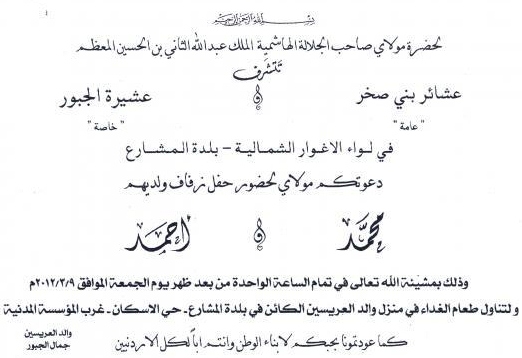 بسم الله الرحمن الرحيم
لحضرة مولاي صاحب الجلالة الهاشمية الملك عبدالله الثاني بن الحسين المعظم
تتشرف
عشائر بني صخر و عشيرة الجبور
"عامة" "خاصة"
في لواء الاغوار الشمالية - بلدة المشارع
دعوتكم مولاي لحضور حفل زفاف ولديهم
محمد و احمد
وذلك بمشيئة الله تعالى في تمام الساعة الواحدة من بعد ظهر يوم الجمعة الموافق ٢٠١٢/٣/٩م
ولتناول طعام الغداء في منزل والد العريسين الكائن في بلدة المشارع - حي الاسكان - غرب المؤسسة المدنية
كما عودتمونا بحبكم لابناء الوطن وانتم اباً لكل الاردنيين
والد العريسين
جمال الجبور